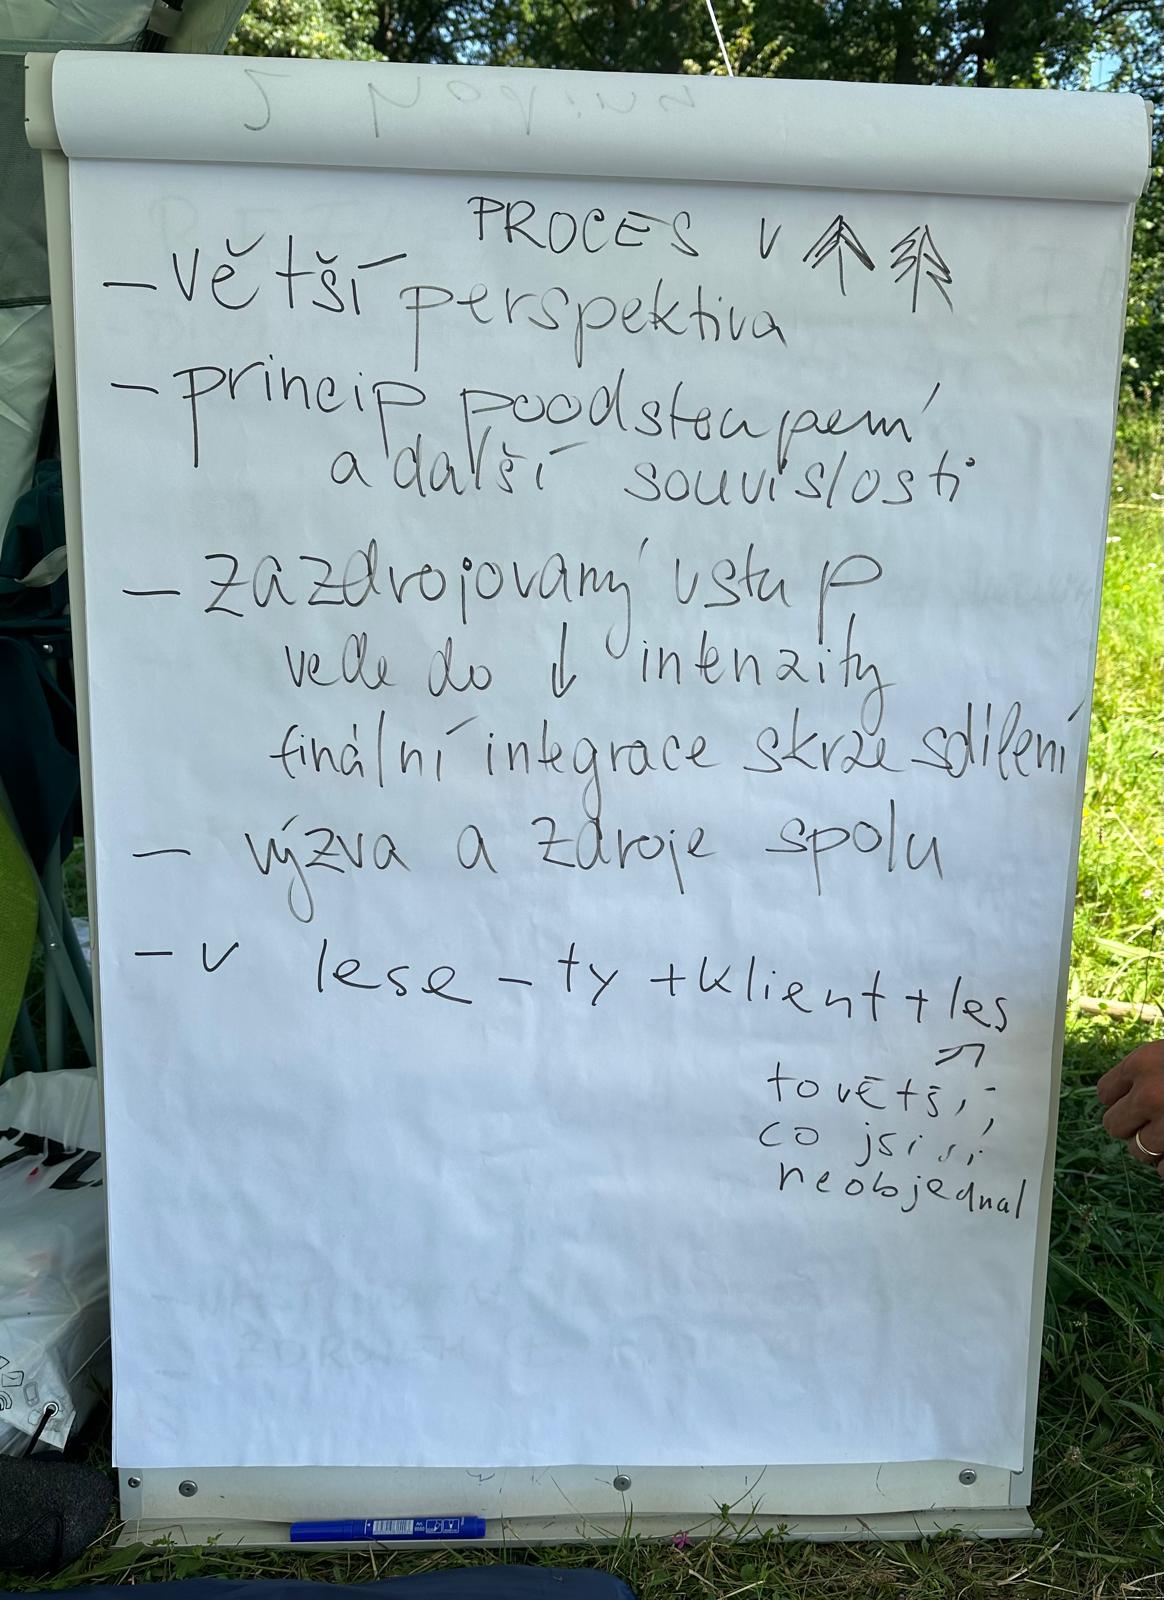 PROCES V
– větší perspektiva
– princip poodstoupení
a další souvislosti
– zazdrojovaný vstup
vede do ↓ intenzity
finální integrace skrze sdílení
– výzva a zdroje spolu
– v lese – ty + klient + les
to větší,
co jsi si
neobjednal